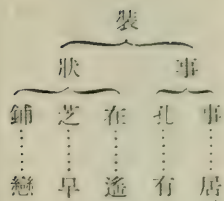 裝
狀 事
鋪 芝 在 孔 事
戀 早 遙 有 居